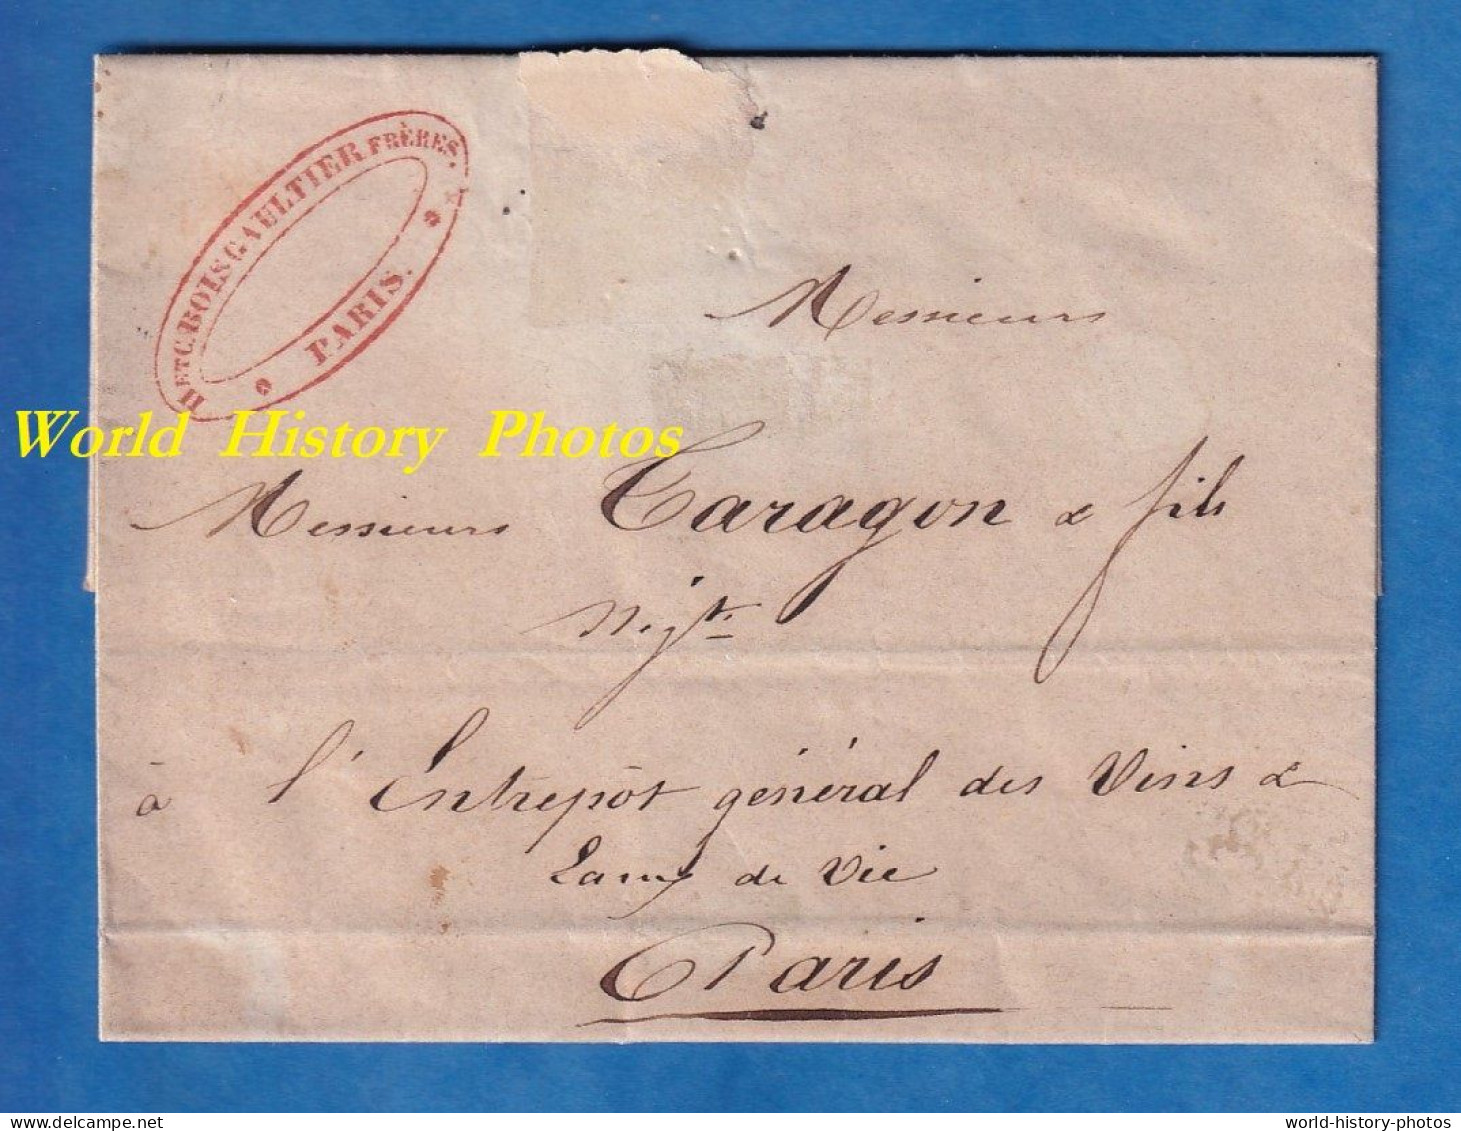 H ET C. BOISGAULTIER FRÈRES.
PARIS.
Messieurs
World History Photos
Messieurs Taragon & fils
Négts
à l'Entrepôt général des Vins &
Eaux de Vie
Paris
delcampe.net
world-history-photos